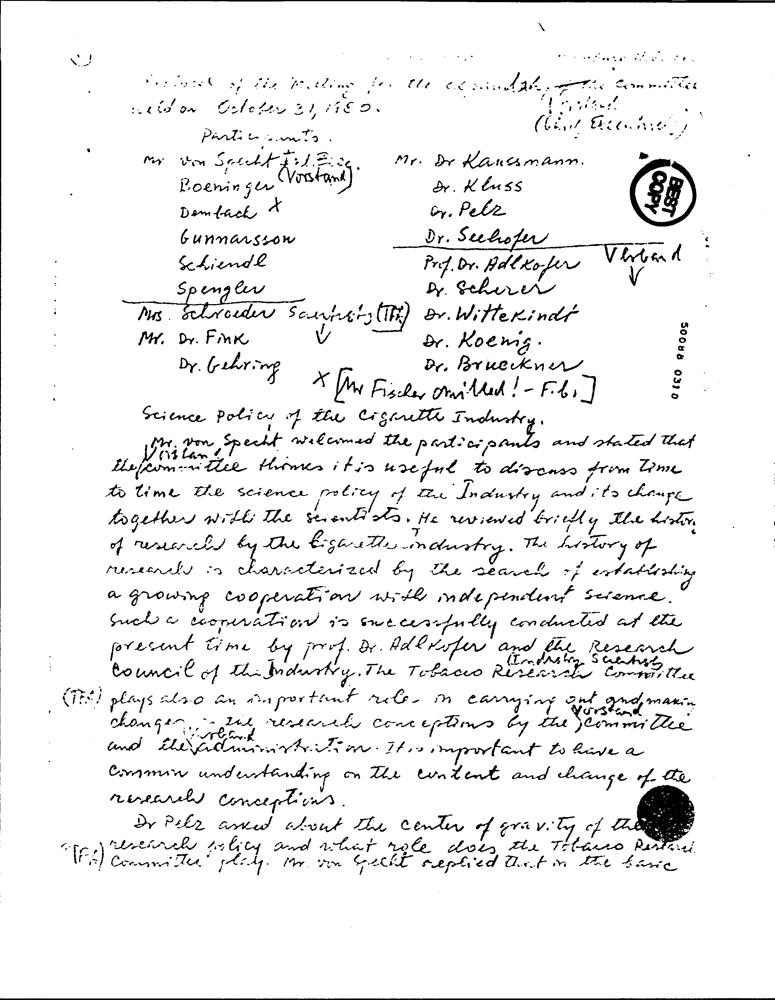 Protocol of the Meeting for the of the Committee
held on October 31, 1980. Vorstand
(Chief Executives)
Participants.
Mr von Specht Vorstand)
Boeninger
Dembach X
Gunnarsson
Schiendl
Spengler
Mrs. Schroeder Scientists (TFA)
Mr. Dr. Fink
Dr. Gehring
Mr. Dr Kaussmann.
Dr. Kluss
Dr. Pelz
Dr. Seehofer
Prof. Dr. Adlkofer Verband
Dr. Scherer
Dr. Wittekindt
Dr. Koenig.
Dr. Brueckner
X [Mr Fischer omitted! - F.G.]
BEST COPY
50088 0310
Science Policy of the Cigarette Industry.
Mr. von Specht welcomed the participants and stated that
Vorstand
the committee thinks it is useful to discuss from time
to time the science policy of the Industry and its change
together with the scientists. He reviewed briefly the history
of research by the Cigarette industry. The history of
research is characterized by the search of establishing
a growing cooperation with independent science.
Such a cooperation is successfully conducted at the
present time by prof. Dr. Adlkofer and the Research
(Industry Scientists
Council of the Industry. The Tobacco Research Committee
(TFA) plays also an important role in carrying out and making
Vorstand
changes in the research conceptions by the committee
Verband
and the administration. It is important to have a
common understanding on the content and change of the
research conceptions.
Dr Pelz asked about the center of gravity of the
research policy and what role does the Tobacco Research
(TFA) Committee play. Mr von Specht replied that in the basic